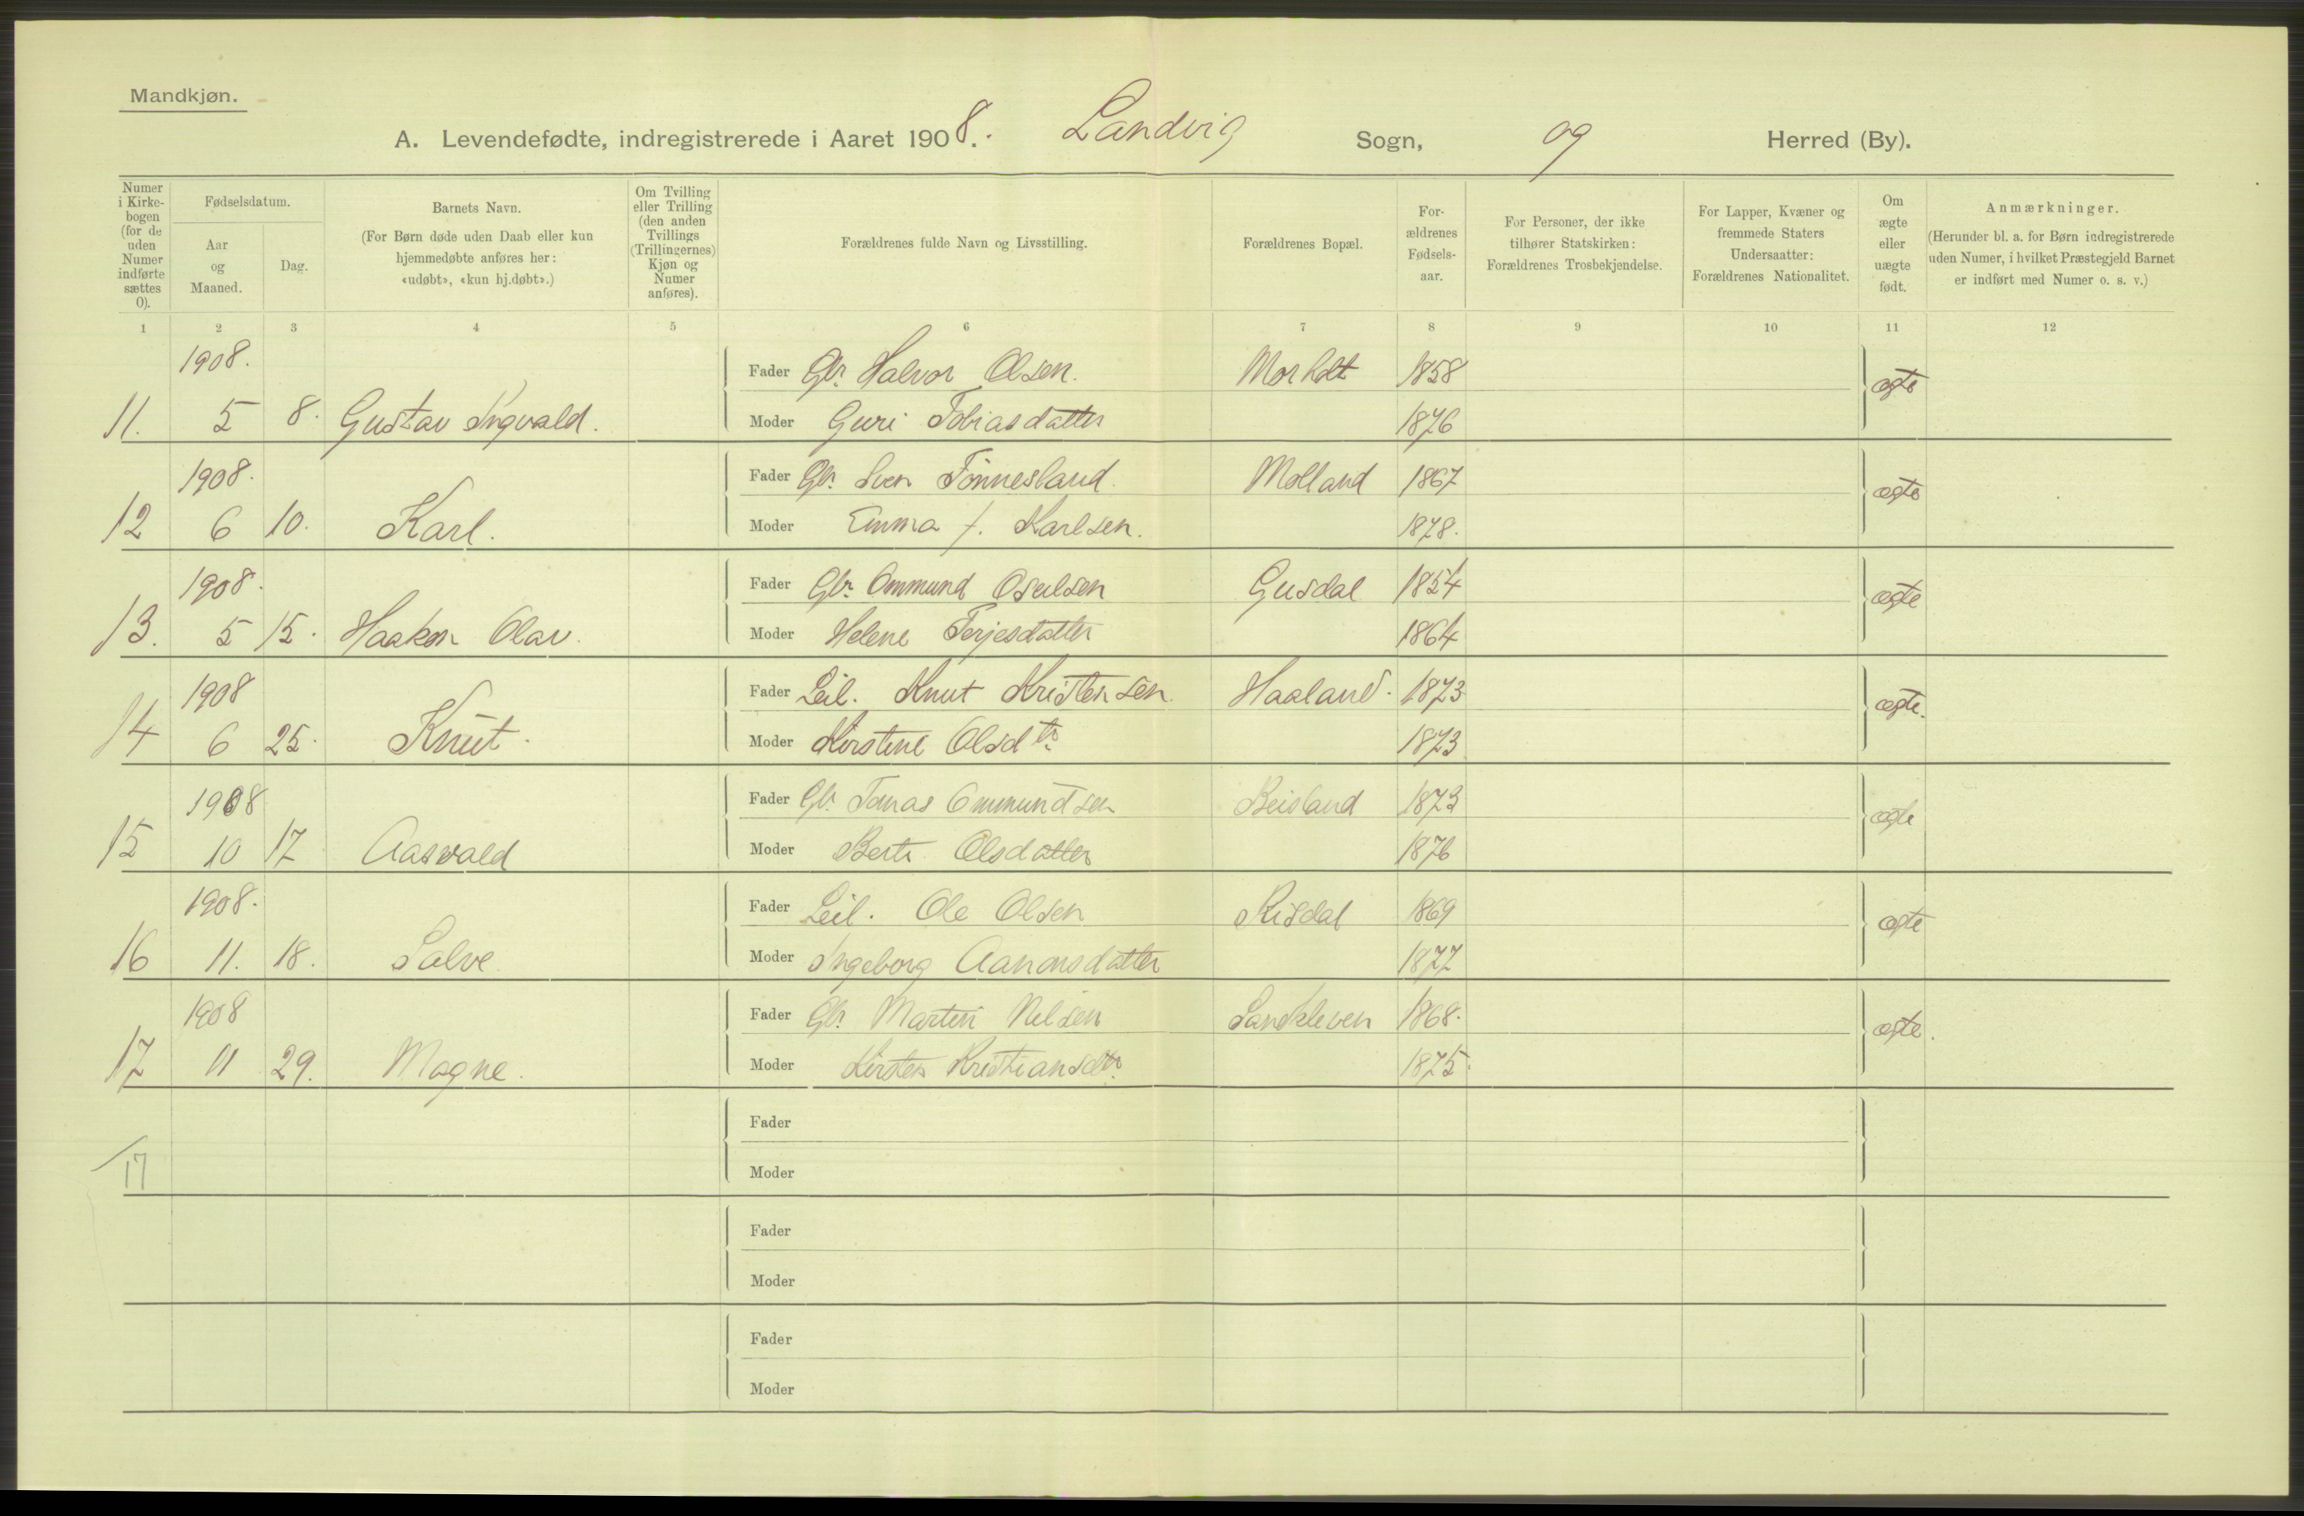 Mandkjøn.
A. Levendefødte, indregistrerede i Aaret 1908. Landvig Sogn, og Herred (By).
Numer i Kirkebogen (for de uden Numer indførte sættes 0).
Fødselsdatum.
Aar og Maaned.
Dag.
Barnets Navn.
(For Børn døde uden Daab eller kun hjemmedøbte anføres her: «udøbt», «kun hj.døbt».)
Om Tvilling eller Trilling (den anden Tvillings (Trillingernes) Kjøn og Numer anføres).
Forældrenes fulde Navn og Livsstilling.
Forældrenes Bopæl.
Forældrenes Fødselsaar.
For Personer, der ikke tilhører Statskirken: Forældrenes Trosbekjendelse.
For Lapper, Kvæner og fremmede Staters Undersaatter: Forældrenes Nationalitet.
Om ægte eller uægte født.
Anmærkninger.
(Herunder bl. a. for Børn indregistrerede uden Numer, i hvilket Præstegjeld Barnet er indført med Numer o. s. v.)
1 2 3 4 5 6 7 8 9 10 11 12
1908. Fader Gbr. Halvor Olsen. Morholt 1858 ægte
11. 5 8. Gustav Ingvald. Moder Guri Tobiasdatter 1876
1908. Fader Gbr. Sven Tønnesland. Molland 1867 ægte
12 6 10. Karl. Moder Emma f. Karlsen. 1878.
1908. Fader Gbr. Ommund Osulsen Gusdal 1854 ægte
13. 5 15. Haakon Olav. Moder Helene Terjesdatter 1864
1908 Fader Leil. Knut Kristensen. Haaland. 1873 ægte.
14 6 25. Knut. Moder Kirstine Olsdtr. 1873
1908 Fader Gbr. Jonas Ommundsen Beisland 1873 ægte
15 10 17 Aasvald Moder Olsdatter 1876
1908. Fader Leil. Ole Olsen Risdal 1869 ægte
16 11. 18. Salve Moder Ingeborg Aanonsdatter 1877
1908 Fader Gbr. Martin Nilsen Sandkleven 1868. ægte.
17 11 29. Magne. Moder Kirsten Kristiansdtr. 1875.
Fader
17 Moder
Fader
Moder
Fader
Moder